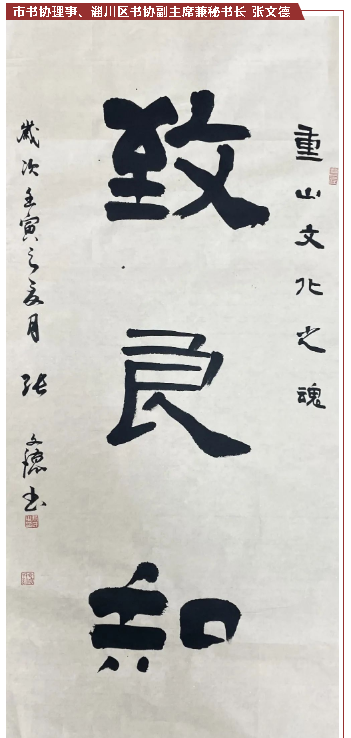 市书协理事、淄川区书协副主席兼秘书长 张文德
重山文化之魂
致良知
歲次壬寅之夏月 张文德书